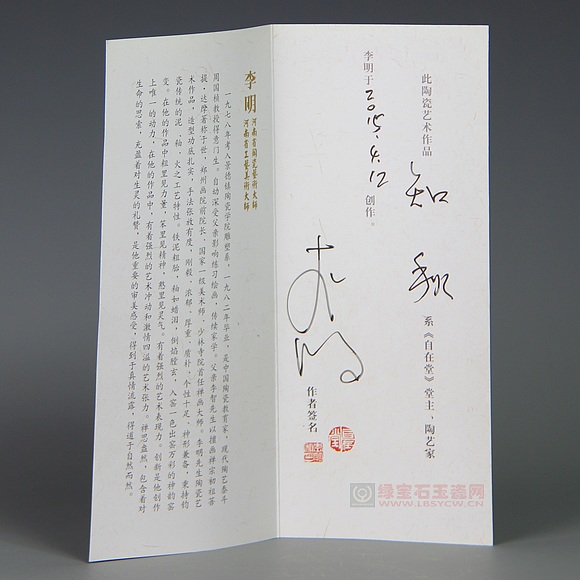 此陶瓷艺术作品 知 系《自在堂》堂主、陶艺家
李明于2015.4.12创作。
李明
作者签名
李明
河南省陶瓷艺术大师
河南省工艺美术大师
一九七八年考入景德镇陶瓷学院雕塑系，一九八二年毕业，是中国陶瓷教育家，现代陶艺泰斗
周国桢教授得意门生。自幼深受父亲影响练习绘画，传续家学。父亲李智先生以擅画禅宗初祖菩
提·达摩著称于世，郑州画院前院长、国家一级美术师，少林寺院首任禅画大师。李明先生陶瓷艺
术作品，造型功底扎实，手法张放有度，刚毅、浓郁、厚重、质朴、个性十足、神形兼备，秉持钧
瓷传统的泥、釉、火之工艺特性。铁泥粗胎，釉如蜡泪，倒焰膛玄，入窑一色出窑万彩的神韵窑
变。在他的作品中粗里见力量，笨里见精神，憨里见灵气。有着强烈的艺术表现力。创新是他创作
上唯一的动力，在他的作品中，有着强烈的艺术冲动和激情四溢的艺术张力。禅思盎然，包含着对
生命的思索，充盈着对生灵的礼赞，是他重要的审美感受，得到于真情流露，得道于自然而然。
绿宝石玉瓷网
WWW.LBSYCW.CN